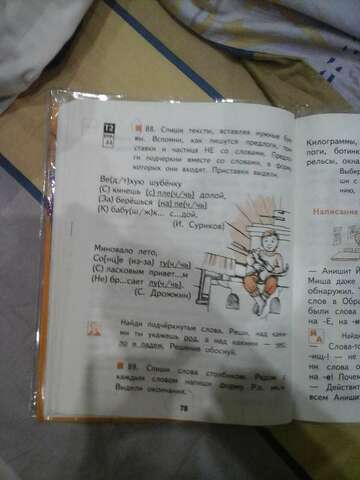 ТЗ
88. Спиши тексты, вставляя нужные бук-
вы. Вспомни, как пишутся предлоги, при-
ставки и частица НЕ со словами. Предло-
ги подчеркни вместе со словами, в форму
которых они входят. Приставки выдели.
Ве(д/т)хую шубёнку
(С) кинешь (с) пле(ч/чь) долой,
(За) берёшься (на) пе(ч/чь)
(К) бабу(ш/ж)к... с...дой.
(И. Суриков)
Миновало лето,
Со(нц)е (из-за) ту(ч/чь)
(С) ласковым привет...м
(Не) бр...сает лу(ч/чь).
(С. Дрожжин)
Найди подчёркнутые слова. Реши, над каки-
ми ты укажешь род, а над какими — чис-
ло и падеж. Решение обоснуй.
89. Спиши слова столбиком. Рядом с
каждым словом напиши форму Р.п.
Выдели окончания.
78
Килограммы,
поги, ботинк
рельсы, окна
Выбер
ми с
Написание
— Анишит М
Миша даже
обнаружил.
слов в Образ
был на стран
на -Е, на -е
А
Найди
— Слова-то
-ищ-! — не
им слова о
на -е! Почем
— Действит
всем Аниши